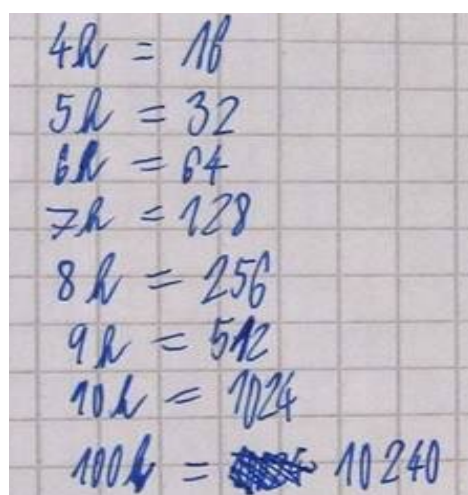 4h = 16
5h = 32
6h = 64
7h = 128
8h = 256
9h = 512
10h = 1024
100h = 10240